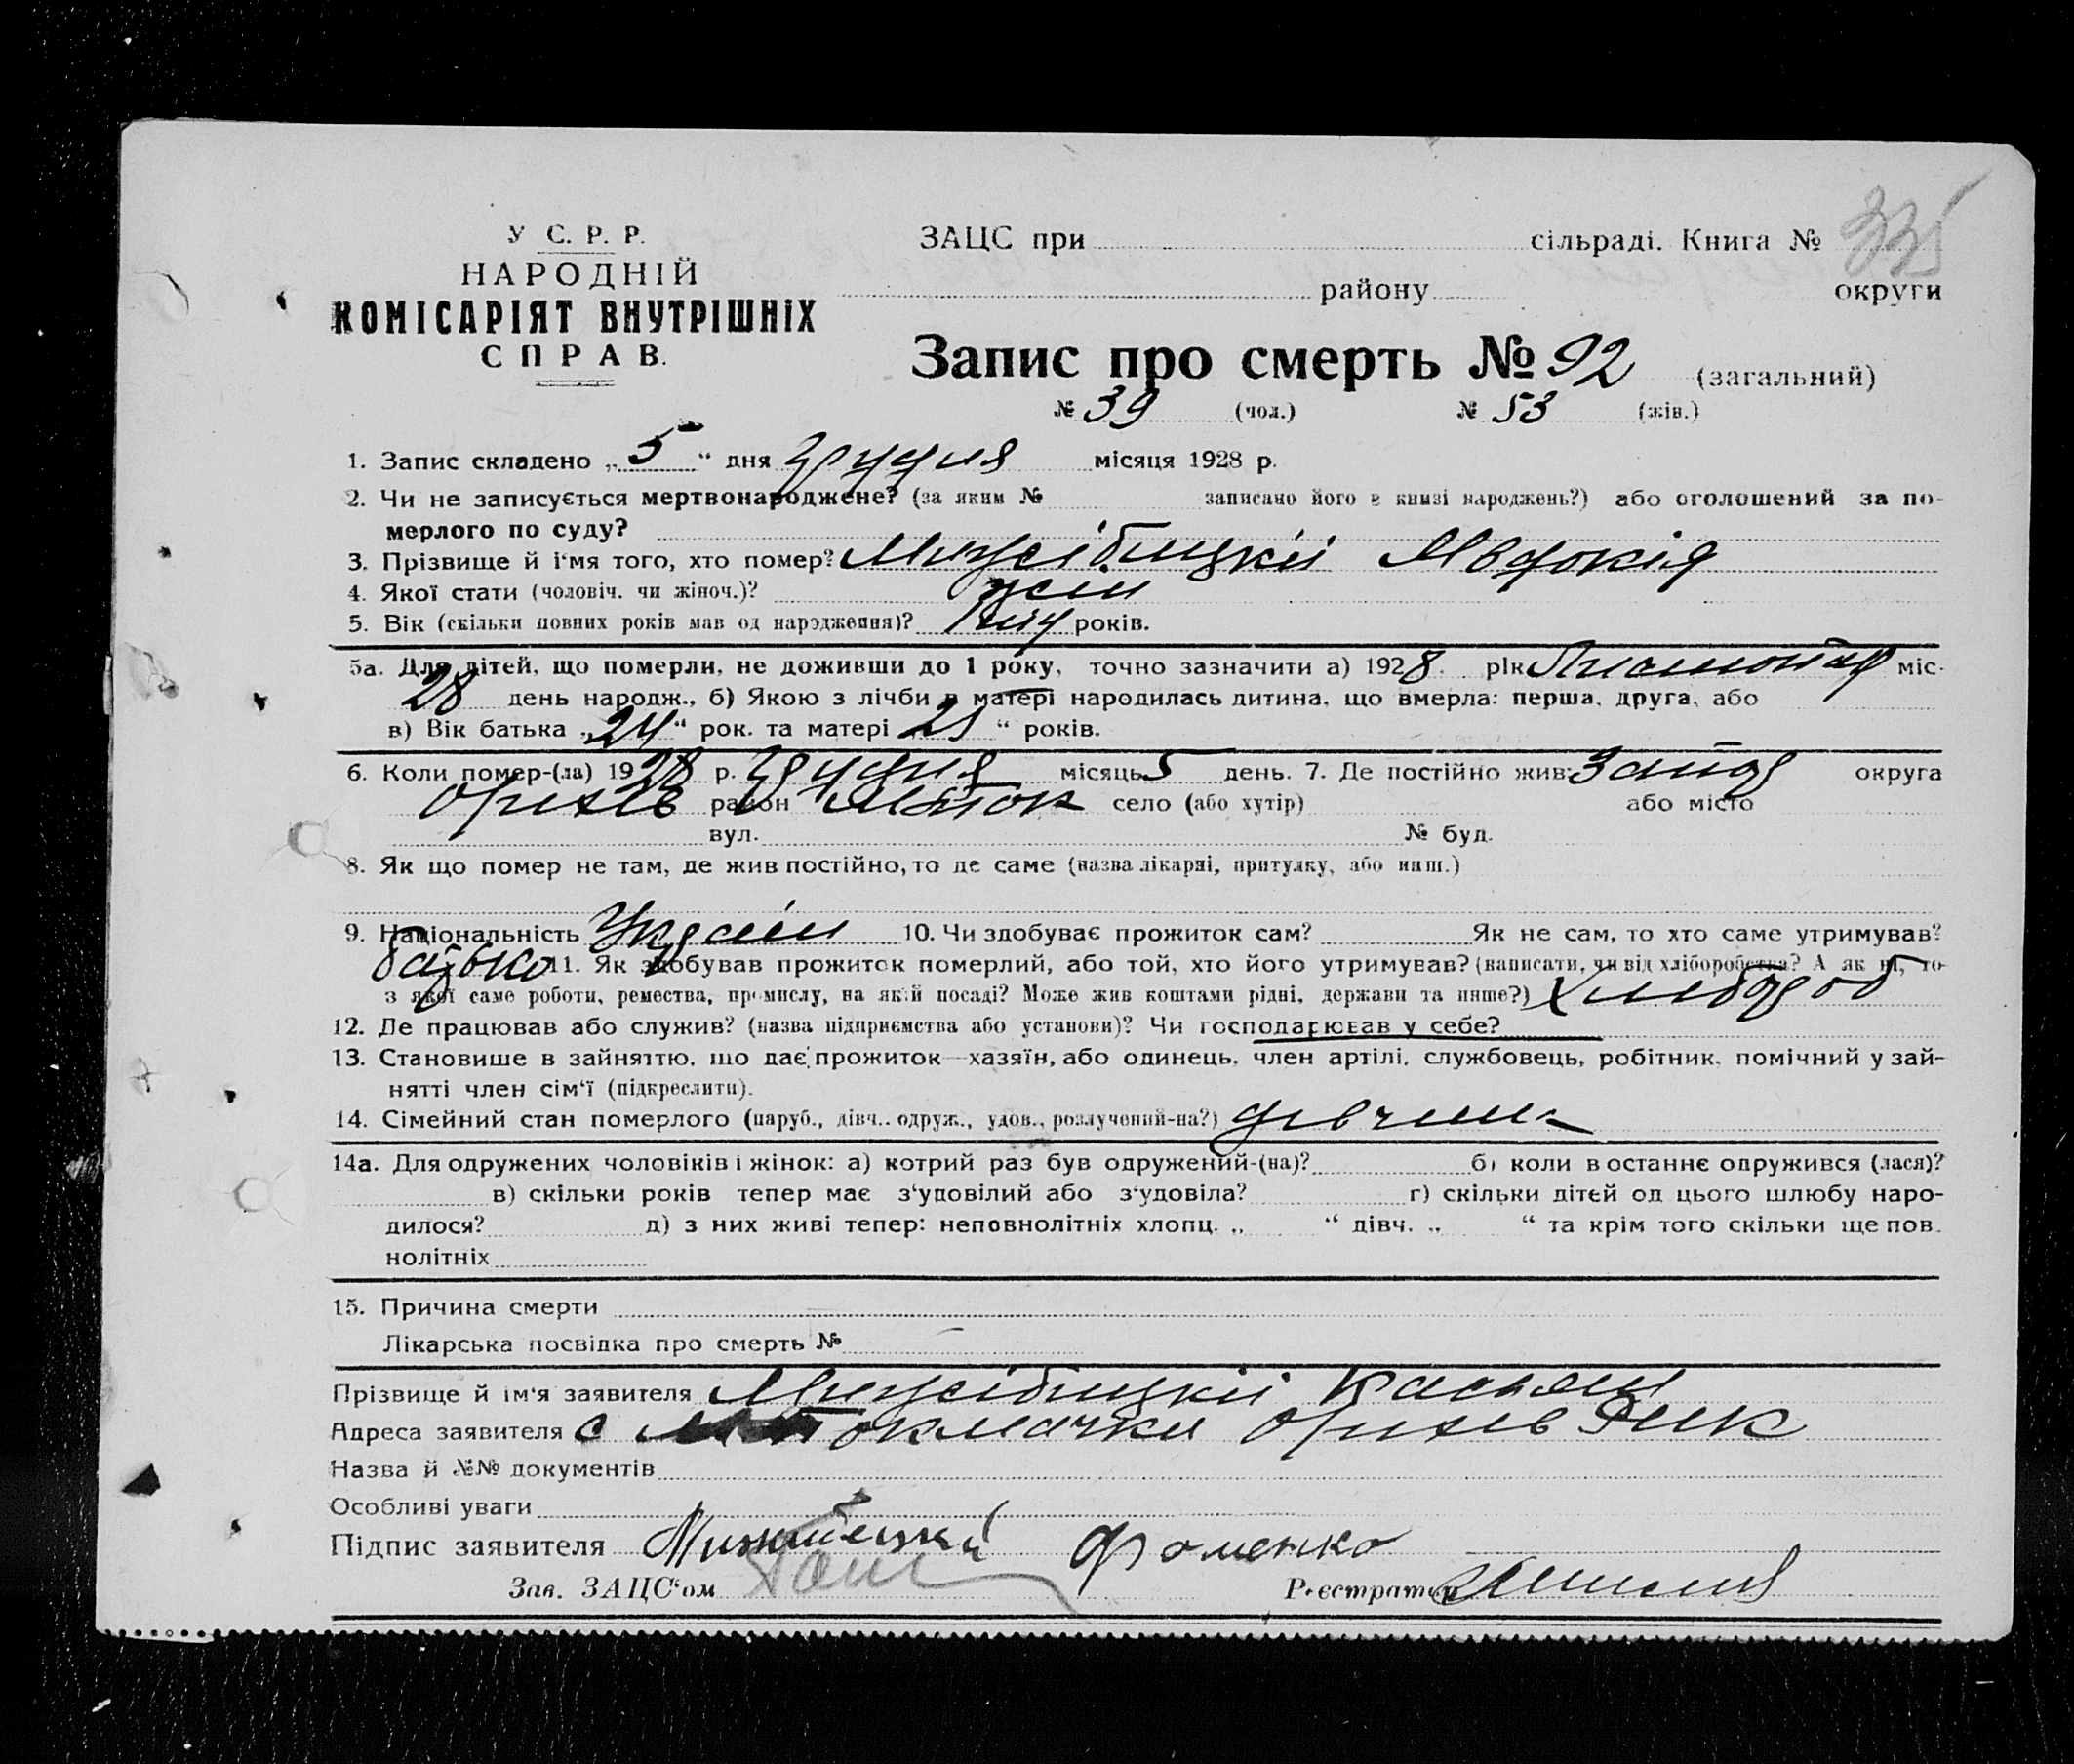 У С. Р. Р.
НАРОДНІЙ
КОМІСАРІЯТ ВНУТРІШНІХ
СПРАВ.
ЗАЦС при сільраді. Книга № 335
району округи
Запис про смерть № 92 (загальний)
№ 39 (чол.) № 53 (жін.)
1. Запис складено „5“ дня грудня місяця 1928 р.
2. Чи не записується мертвонароджене? (за яким № записано його в книзі народжень?) або оголошений за по-
мерлого по суду?
3. Прізвище й і'мя того, хто помер? Мижібицкіі Явдокія
4. Якої стати (чоловіч. чи жіноч.)? жин
5. Вік (скільки повних років мав од народження)? років.
5а. Для дітей, що померли, не доживши до 1 року, точно зазначити а) 1928. рік Листопад міс.
28 день народж., б) Якою з лічби в матері народилась дитина, що вмерла: перша, друга, або
в) Вік батька „24“ рок. та матері „21“ років.
6. Коли помер-(ла) 1928 р. Грудня місяць 5 день. 7. Де постійно жив: Запор округа
Орихів район Мыток село (або хутір) або місто
вул. № буд.
8. Як що помер не там, де жив постійно, то де саме (назва лікарні, притулку, або инш.)
9. Національність Украін 10. Чи здобуває прожиток сам? Як не сам, то хто саме утримував?
батько 11. Як здобував прожиток померлий, або той, хто його утримував? (написати, чи від хліборобства? А як ні, то
з якої саме роботи, ремества, промислу, на якій посаді? Може жив коштами рідні, держави та инше?) Хлибороб
12. Де працював або служив? (назва підприємства або установи)? Чи господарював у себе?
13. Становище в зайняттю, що дає прожиток—хазяїн, або одинець, член артілі, службовець, робітник, помічний у зай-
нятті член сім'ї (підкреслити).
14. Сімейний стан померлого (паруб., дівч., одруж., удов., розлучений-на?) дівчина
14а. Для одружених чоловіків і жінок: а) котрий раз був одружений-(на)? б) коли востаннє одружився (лася)?
в) скільки років тепер має з'уповілий або з'удовіла? г) скільки дітей од цього шлюбу наро-
дилося? д) з них живі тепер: неповнолітніх хлопц. „ “ дівч. „ “ та крім того скільки ще пов.
нолітніх
15. Причина смерти
Лікарська посвідка про смерть №
Прізвище й ім'я заявителя Мижібицкіі Касьян
Адреса заявителя с Мтокмачки Орихів Рик
Назва й №№ документів
Особливі уваги
Підпис заявителя Фоменко
Зав. ЗАЦС'ом Реєстратор